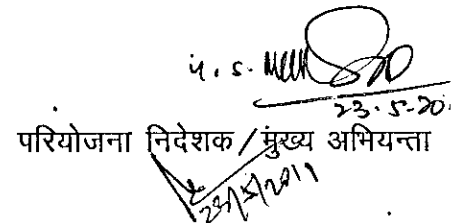 23.5.20
परियोजना निदेशक / मुख्य अभियन्ता
23/5/2011